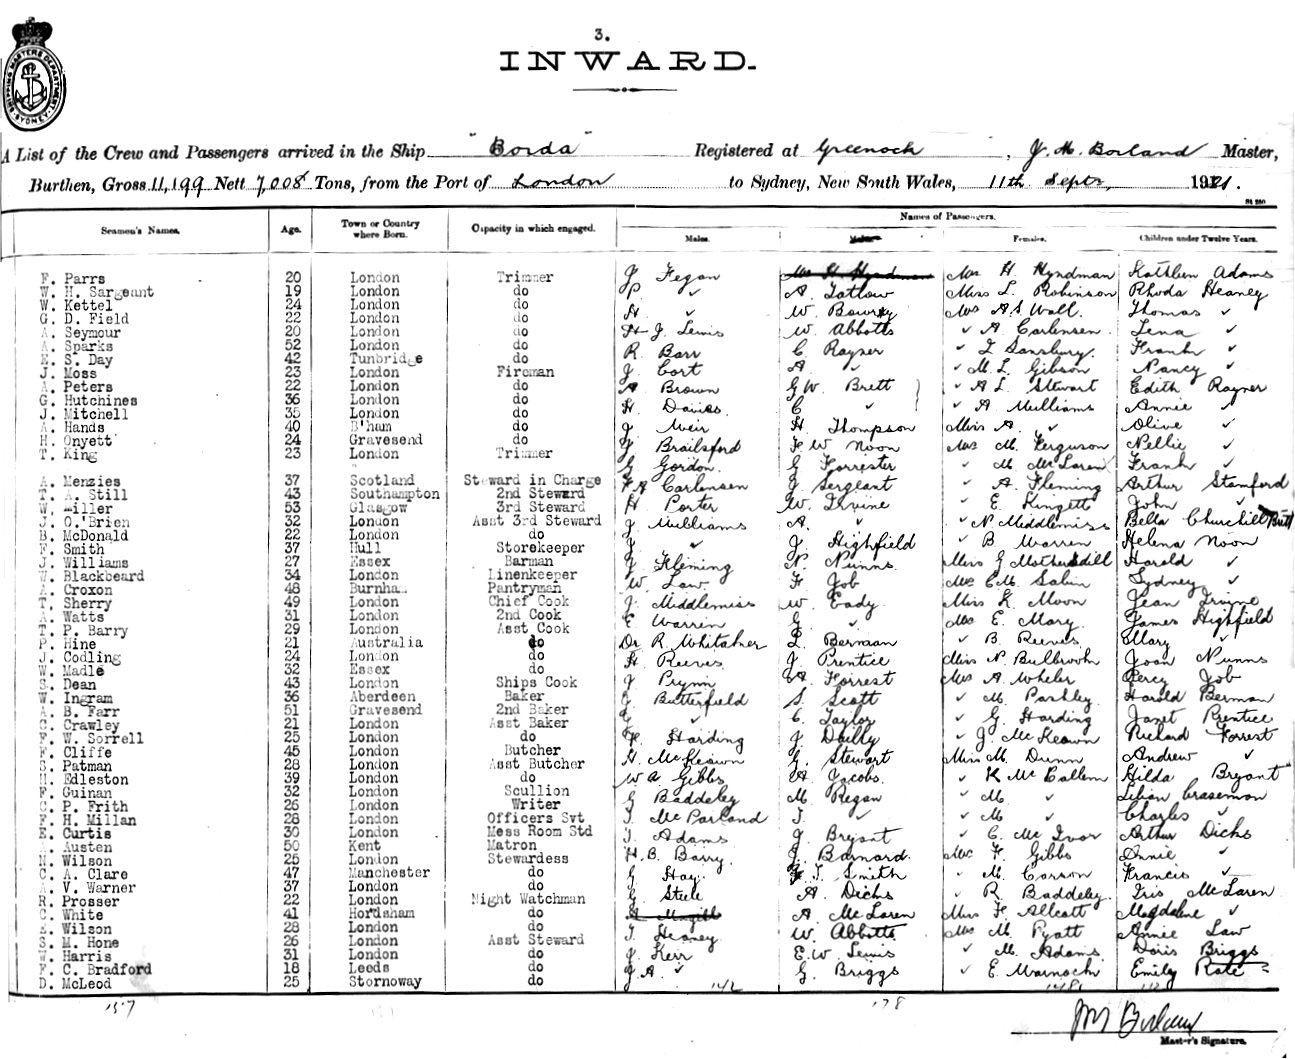 SHIPPING MASTERS DEPARTMENT SYDNEY
3.
INWARD.
A List of the Crew and Passengers arrived in the Ship "Borda" Registered at Greenock, J. M. Borland Master,
Burthen, Gross 11,199 Nett 7,008 Tons, from the Port of London to Sydney, New South Wales, 11th Septr 1921.
Names of Passengers.
Seamen's Names. Age. Town or Country where Born. Capacity in which engaged. Males. Males. Females. Children under Twelve Years.
F. Parrs 20 London Trimmer J. Fegan Mrs H. Hyndman Kathleen Adams
W. H. Sargeant 19 London do P. ✓ A. Tatlow Miss L. Robinson Rhoda Heaney
W. Kettel 24 London do H. ✓ W. Mrs A. S. Wall. Thomas ✓
G. D. Field 22 London do H. J. Lewis W. Abbotts ✓ A. Carlensen Lena ✓
A. Seymour 20 London do R. Barr C. Rayner ✓ Sansbury. Frank ✓
A. Sparks 52 London do J. Cort A. ✓ ✓ M. L. Gibson Nancy ✓
E. S. Day 42 Tunbridge do A. Brown G. W. Brett ✓ A. L. Stewart Edith Rayner
J. Moss 23 London Fireman H. Davies. C. ✓ ✓ A. Mulliams Annie ✓
A. Peters 22 London do J. Weir H. Thompson Miss A. ✓ Olive ✓
G. Hutchines 36 London do J. Brailsford F. W. Noon Mrs M. Ferguson Nellie ✓
J. Mitchell 35 London do G. Gordon. G. Forrester ✓ M. McLaren Frank ✓
A. Hands 40 B'ham do F. A. Carlensen J. Sergeant ✓ A. Fleming Arthur Stamford
H. Onyett 24 Gravesend do H. Porter W. Irvine ✓ E. Kingett John ✓
T. King 23 London Trimmer J. Mulliams A. ✓ ✓ N. Middlemiss Bella Churchill
A. Menzies 37 Scotland Steward in Charge J. ✓ J. Highfield ✓ B. Warren Helena Noon
T. A. Still 43 Southampton 2nd Steward J. Fleming N. Nunns Miss J. Mothersdill Harold ✓
W. Miller 53 Glasgow 3rd Steward W. Law F. Job Mrs E. M. Salin Sydney ✓
J. O.'Brien 32 London Asst 3rd Steward J. Middlemiss W. Eady. Miss K. Moon Jean Irvine
B. McDonald 22 London do E. Warren G. ✓ Mrs E. Mary. James Highfield
F. Smith 37 Hull Storekeeper Dr R. Whitaker L. Berman ✓ B. Reeves Mary ✓
J. Williams 27 Essex Barman H. Reeves J. Prentice Miss N. Joan Nunns
W. Blackbeard 34 London Linenkeeper J. Prynn A. Forrest Mrs A. Wheler Percy Job
A. Croxon 48 Burnham Pantryman G. Butterfield S. Scott ✓ M. Parkley Harold Berman
T. Sherry 49 London Chief Cook ✓ C. Taylor ✓ G. Harding Janet Prentice
A. Watts 31 London 2nd Cook F. Harding J. Dailly ✓ J. McKeown Richard Forrest
T. P. Barry 29 London Asst Cook H. McKeown G. Stewart Miss M. Dunn Andrew ✓
P. Hine 21 Australia do W. A. Gibbs A. Jacobs. ✓ K. McCallem Hilda Bryant
J. Codling 24 London do G. Baddeley M. Regan ✓ M. ✓ Lilian Craseman
W. Madle 32 Essex do T. McParland T. ✓ ✓ M. ✓ Charles ✓
S. Dean 43 London Ships Cook T. Adams J. Bryant ✓ C. McIvor Arthur Dicks
W. Ingram 36 Aberdeen Baker H. B. Barry. J. Barnard. Mrs F. Gibbs Annie ✓
A. B. Farr 51 Gravesend 2nd Baker G. Hay. J. Smith ✓ M. Corson Francis ✓
C. Crawley 21 London Asst Baker G. Steele A. Dicks ✓ R. Baddeley. Iris McLaren
F. W. Sorrell 25 London do A. McLaren Miss F. Allcott Magdalene ✓
F. Cliffe 45 London Butcher T. Heaney W. Abbotts Mrs M. Pyatt Annie Law
S. Patman 28 London Asst Butcher J. Kerr E. W. Lewis ✓ M. Adams Doris Briggs
H. Edleston 39 London do J. A. ✓ G. Briggs ✓ E. Warnock Emily Rate
F. Guinan 32 London Scullion
C. P. Frith 26 London Writer
F. H. Millan 28 London Officers Svt
E. Curtis 30 London Mess Room Std
A. Austen 50 Kent Matron
N. Wilson 25 London Stewardess
C. A. Clare 47 Manchester do
A. V. Warner 37 London do
R. Prosser 22 London Night Watchman
C. White 41 Hordsham do
E. Wilson 28 London do
S. M. Hone 26 London Asst Steward
W. Harris 31 London do
F. C. Bradford 18 Leeds do
D. McLeod 25 Stornoway do
157 142 178
J M Borland
Master's Signature.